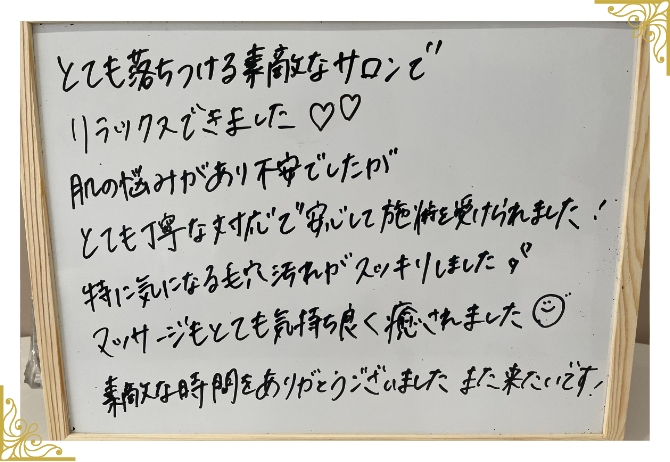 とても落ちつける素敵なサロンで
リラックスできました♡♡
肌の悩みがあり不安でしたが
とても丁寧な対応で安心して施術を受けられました!
特に気になる毛穴汚れがスッキリしました
マッサージもとても気持ち良く癒されました
素敵な時間をありがとうございました また来たいです!